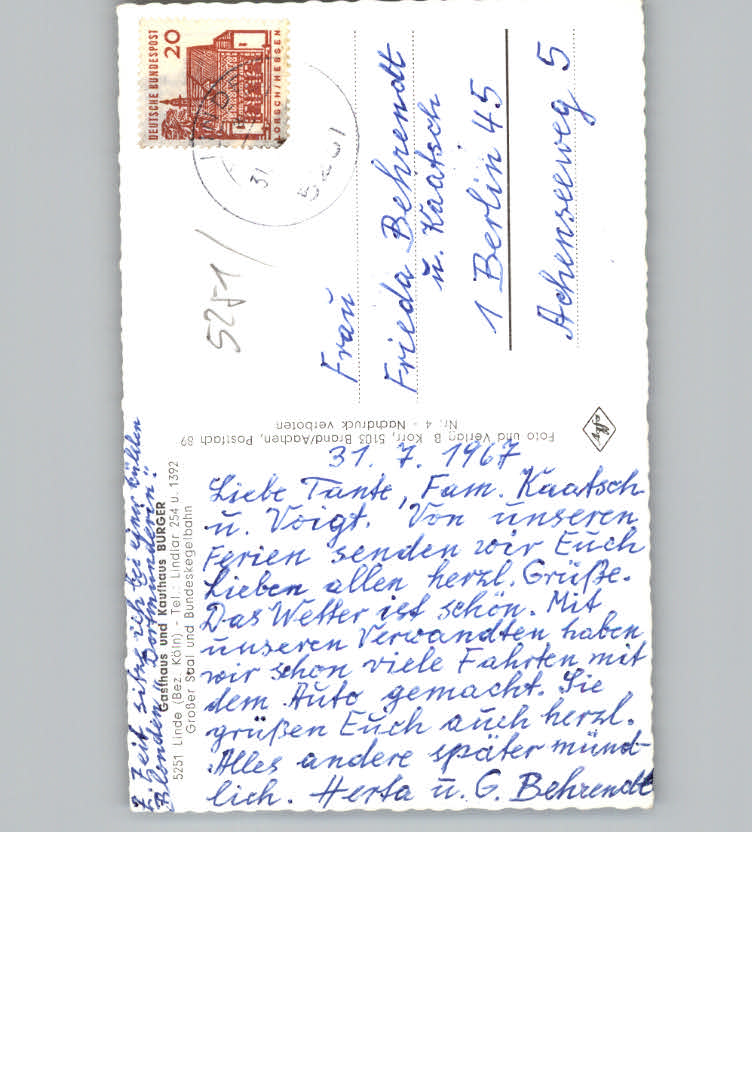 DEUTSCHE BUNDESPOST
20
LORSCH/HESSEN
31
5251
Frau
Frieda Behrendt
u. Kaatsch
1 Berlin 45
Achenseeweg 5
Foto und Verlag B. Korr, 5103 Brand/Aachen, Postfach 89
Nr. 4 - Nachdruck verboten
Gasthaus und Kaufhaus BURGER
5251 Linde (Bez. Köln) - Tel.: Lindlar 254 u. 1392
Großer Saal und Bundeskegelbahn
31. 7. 1967
Liebe Tante, Fam. Kaatsch
u. Voigt. Von unseren
Ferien senden wir Euch
Lieben allen herzl. Grüße.
Das Wetter ist schön. Mit
unseren Verwandten haben
wir schon viele Fahrten mit
dem Auto gemacht. Sie
grüßen Euch auch herzl.
Alles andere später münd-
lich. Herta u. G. Behrendt
Z. Zeit sitze ich bei einer kühlen
Blonden "Dortmunderin".